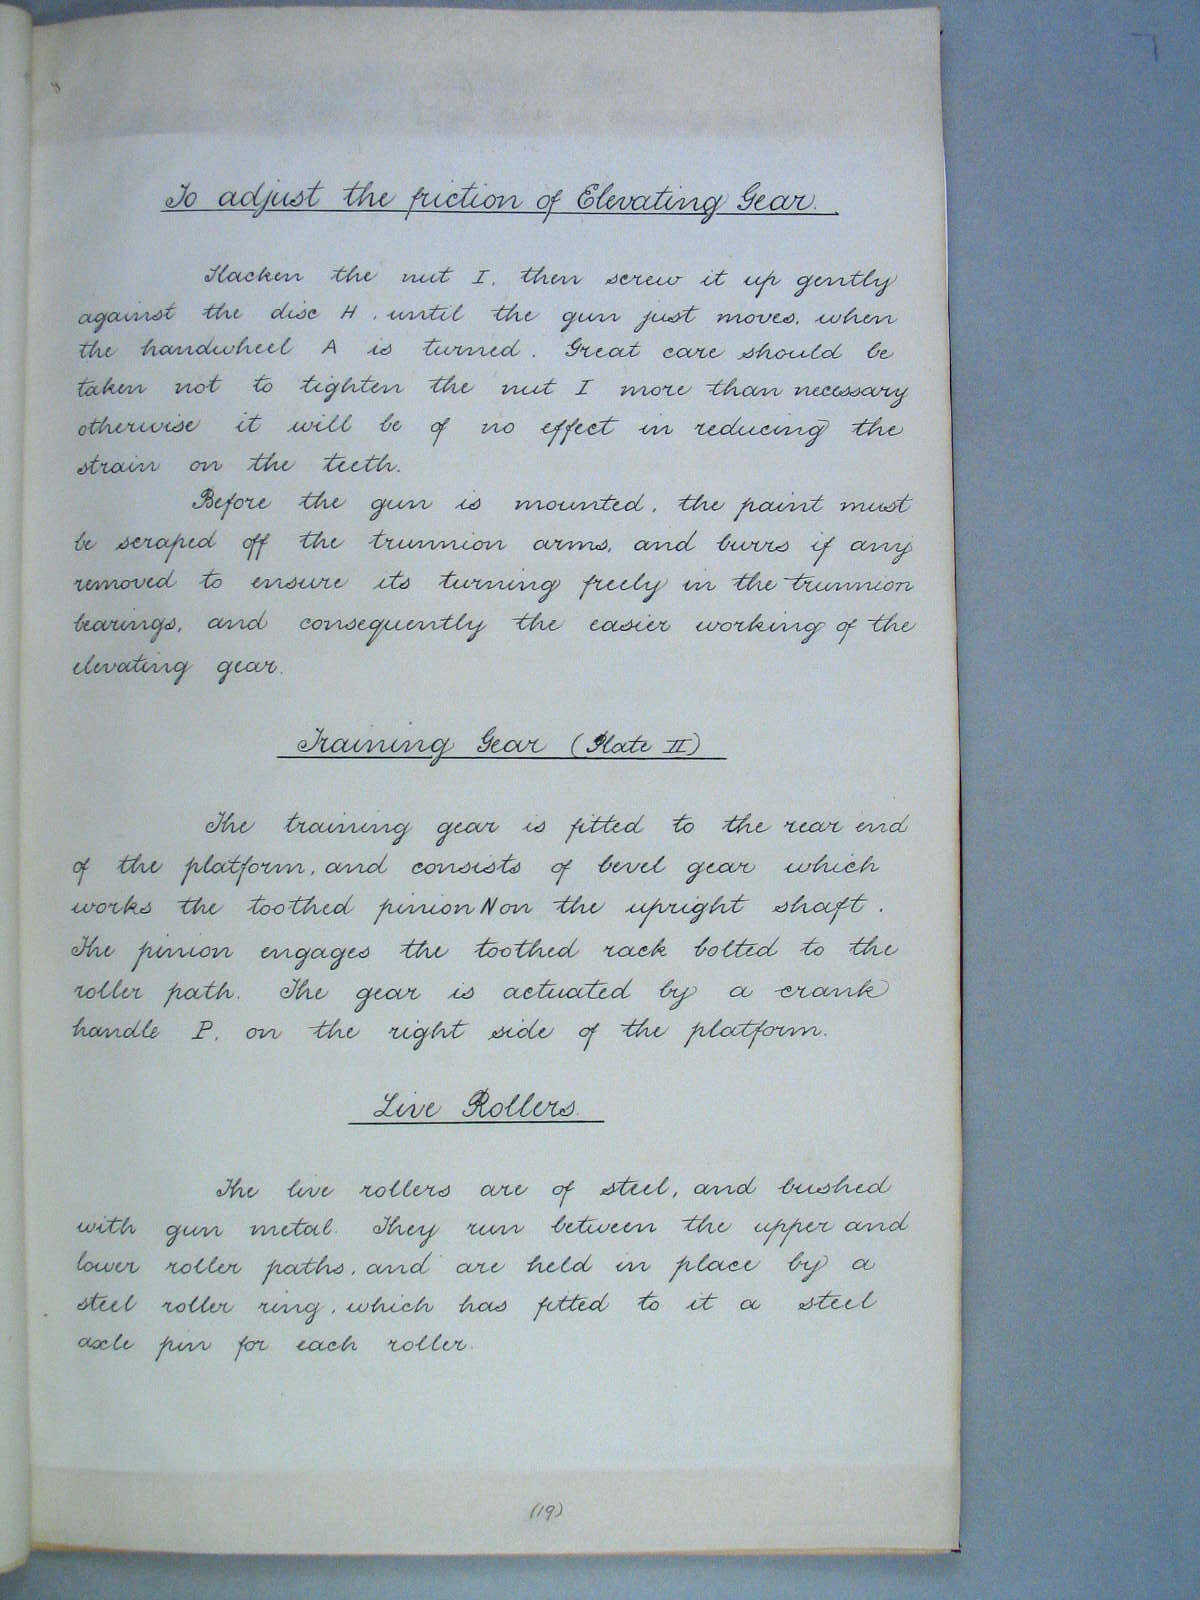 To adjust the friction of Elevating Gear.
Slacken the nut I, then screw it up gently
against the disc H, until the gun just moves, when
the handwheel A is turned. Great care should be
taken not to tighten the nut I more than necessary
otherwise it will be of no effect in reducing the
strain on the teeth.
Before the gun is mounted, the paint must
be scraped off the trunnion arms, and burrs if any
removed to ensure its turning freely in the trunnion
bearings, and consequently the easier working of the
elevating gear.
Training Gear (Plate II)
The training gear is fitted to the rear end
of the platform, and consists of bevel gear which
works the toothed pinion N on the upright shaft.
The pinion engages the toothed rack bolted to the
roller path. The gear is actuated by a crank
handle P, on the right side of the platform.
Live Rollers.
The live rollers are of steel, and bushed
with gun metal. They run between the upper and
lower roller paths, and are held in place by a
steel roller ring, which has fitted to it a steel
axle pin for each roller.
(19)